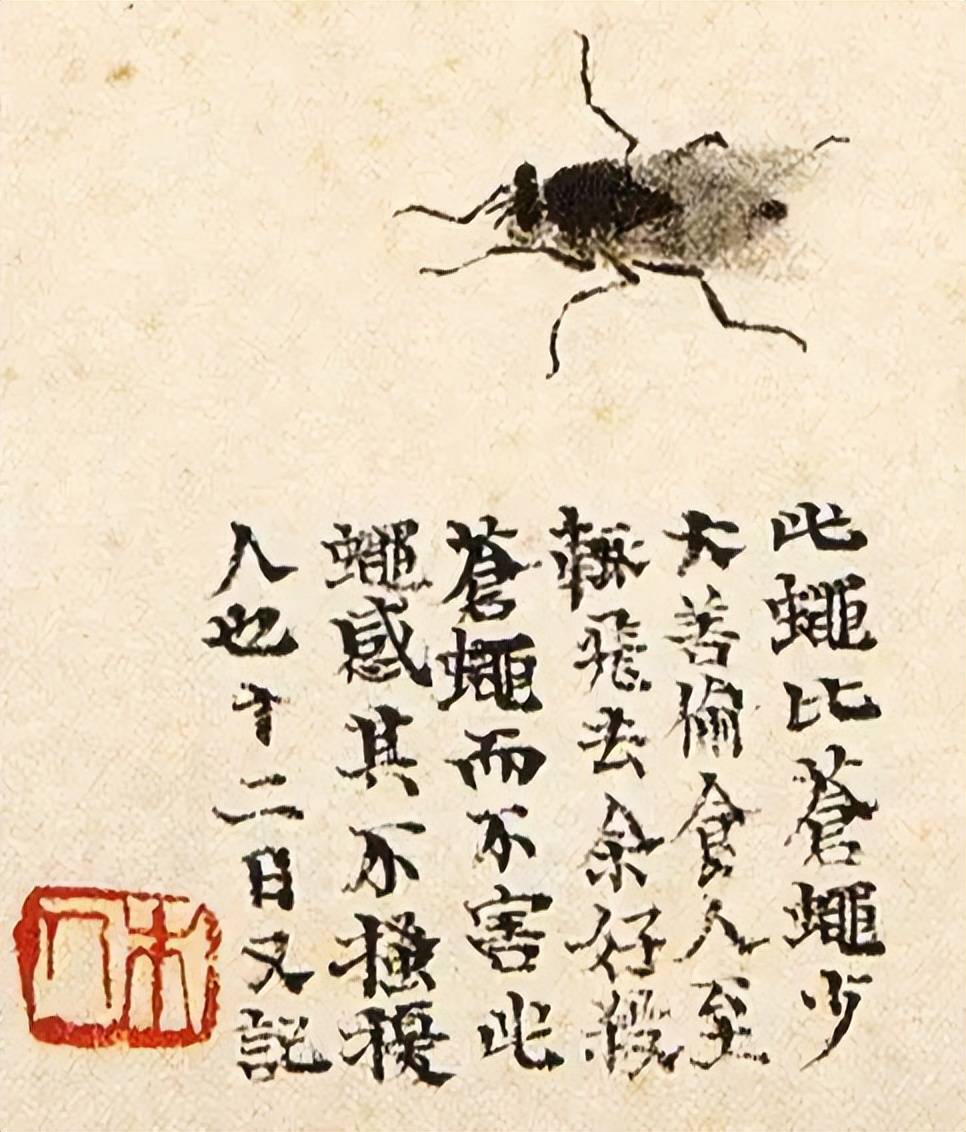 此蠅比蒼蠅少
大善偷食人至
輒飛去余好殺
蒼蠅而不害此
蠅感其不搔擾
人也十二日又記
木人